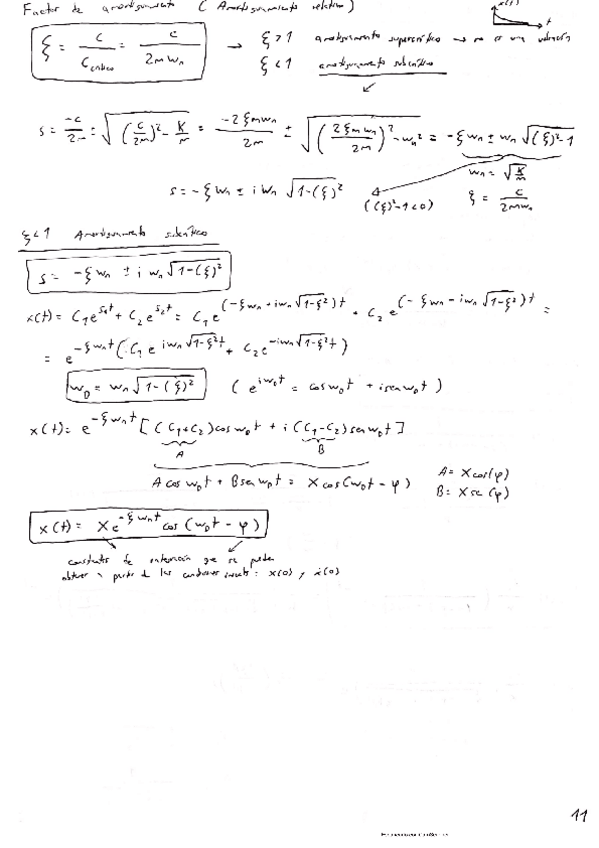 Factor de amortiguamiento (Amortiguamiento relativo)
x(t)
t
ξ = c / C crítico = c / 2mωn → ξ > 1 amortiguamiento supercrítico → no es una vibración
ξ < 1 amortiguamiento subcrítico
s = -c/2m ± √((c/2m)² - K/m) = -2ξmωn/2m ± √((2ξmωn/2m)² - ωn²) = -ξωn ± ωn √((ξ)²-1)
s = -ξωn ± iωn √(1-(ξ)²)
((ξ)²-1<0)
ωn = √(K/m)
ξ = c/2mωn
ξ<1 Amortiguamiento subcrítico
s = -ξωn ± i ωn √(1-(ξ)²)
x(t) = C₁e^(s₁t) + C₂e^(s₂t) = C₁e^((-ξωn+iωn√(1-ξ²))t) + C₂e^((-ξωn-iωn√(1-ξ²))t) =
= e^(-ξωnt) (C₁e^(iωn√(1-ξ²)t) + C₂e^(-iωn√(1-ξ²)t))
ω_D = ωn√(1-(ξ)²) (e^(iω_Dt) = cosω_Dt + isenω_Dt)
x(t) = e^(-ξωnt) [(C₁+C₂)cosω_Dt + i(C₁-C₂)senω_Dt]
A B
Acosω_Dt + Bsenω_Dt = Xcos(ω_Dt - φ)
A = Xcos(φ)
B = Xse (φ)
x(t) = Xe^(-ξωnt) cos(ω_Dt - φ)
constantes de integración que se pueden
obtener a partir de las condiciones : x(0) y ẋ(0)
11